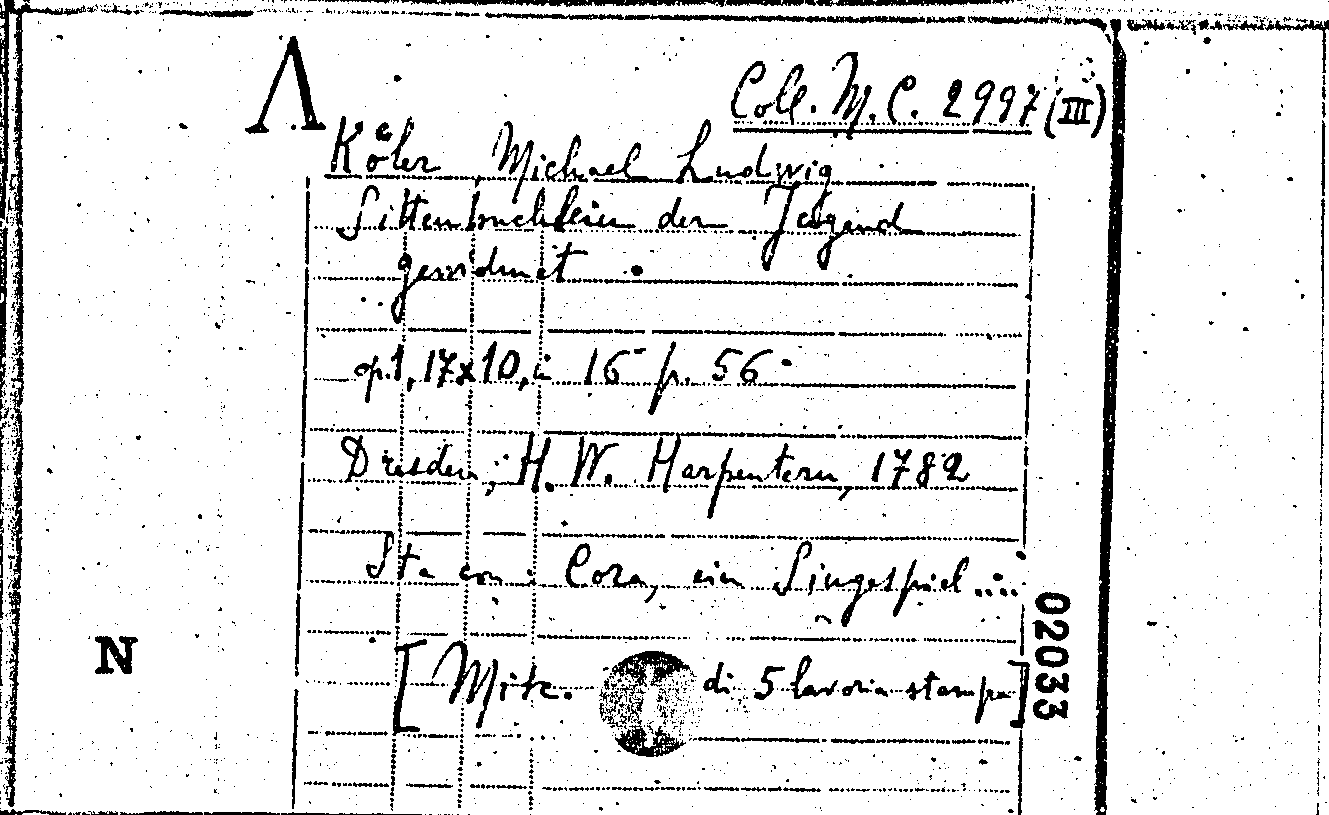 Λ
Coll. M. C. 2997 (III)
Köler, Michael Ludwig
Sittenbuchlein der Jugend
gewidmet.
op. 1, 17x10, in 16° p. 56
Dresden, H. W. Harpentern, 1782
Sta con: Cora, ein Singespiel ....
[Misc. di 5 lavori a stampa]
N
02033